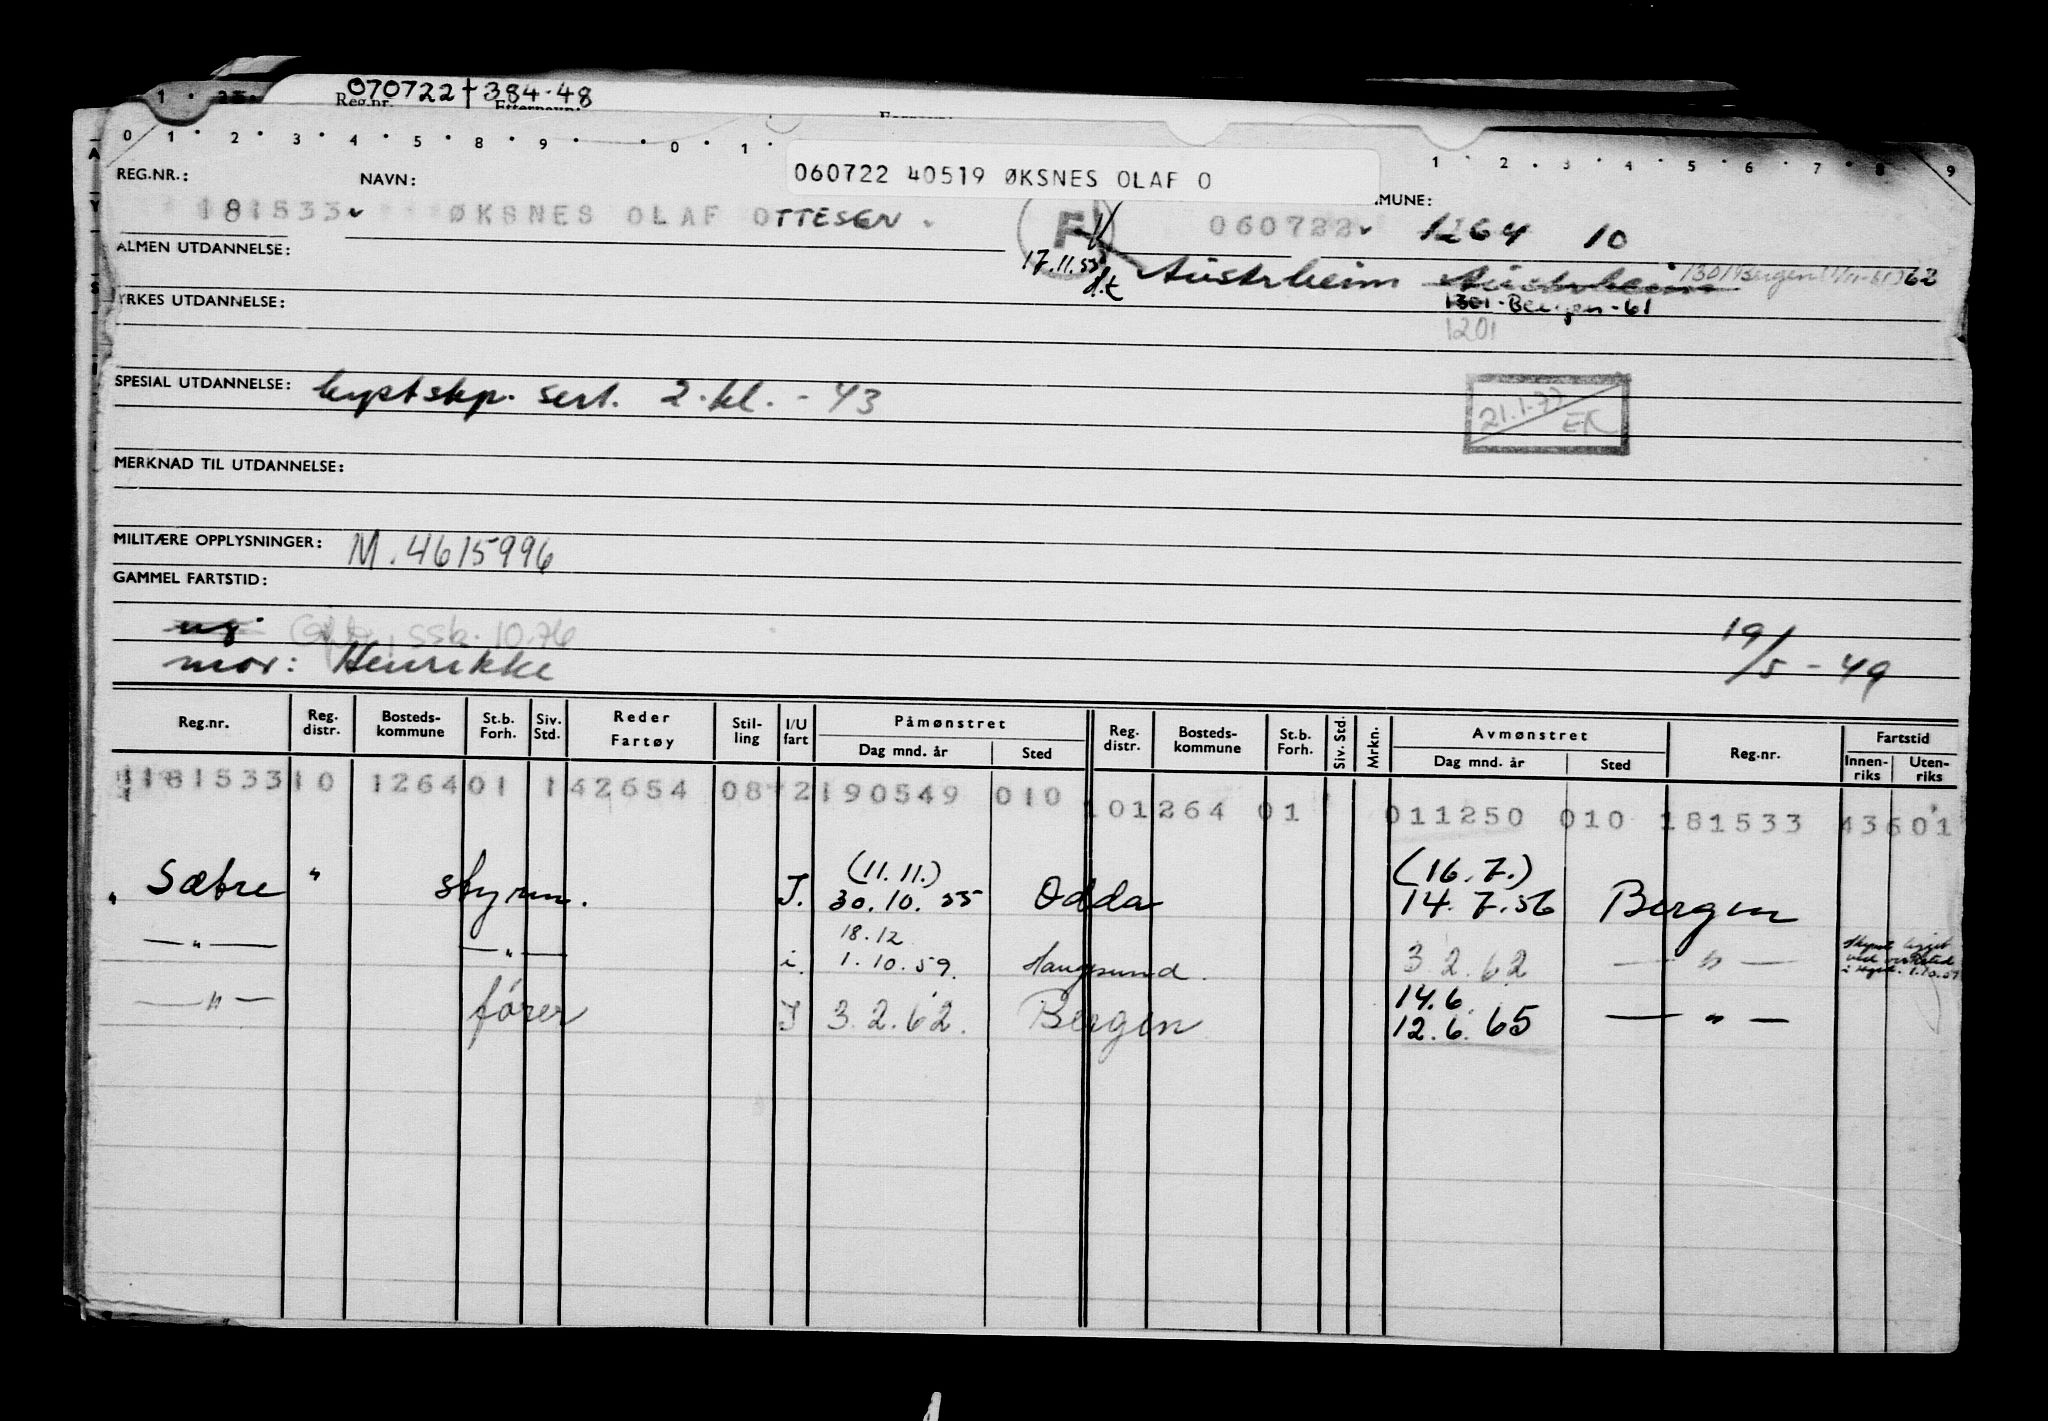 070722 + 384-48
Reg.nr. Etternavn:
1 · 2 3 · 4 · 5 · 8 · 9 · · 0 · 1 · 1 · 2 · 3 · 4 · 5 · 6 · 7 · 8 · 9
060722 40519 ØKSNES OLAF O
REG.NR.: NAVN: MUNE:
181533 ØKSNES OLAF OTTESEN F 060722 1264 10
ALMEN UTDANNELSE: 17.11.53 Austrheim Austrheim 1301 Bergen 62
d.t
YRKES UTDANNELSE: 1301-Bergen-61
1201
SPESIAL UTDANNELSE: kystskp. sert. 2. kl. - 43
21.1.77 ER
MERKNAD TIL UTDANNELSE:
MILITÆRE OPPLYSNINGER: M. 4615996
GAMMEL FARTSTID:
ug. Gift, ssk. 10.76
mor: Henrikke 19/5-49
Reg.nr. Reg. distr. Bosteds-kommune St.b. Forh. Siv. Std. Reder Fartøy Stil-ling I/U fart Påmønstret Reg. distr. Bosteds-kommune St.b. Forh. Siv. Std. Mrkn. Avmønstret Reg.nr. Fartstid
Dag mnd. år Sted Dag mnd. år Sted Innen-riks Uten-riks
181533 10 1264 01 1 42654 08 2 190549 010 10 1264 01 011250 010 181533 43601
(11.11.) (16.7.)
" Sæbre " styrm. I. 30.10.55 Odda 14.7.56 Bergen
18.12
— " — — " — i. 1.10.59. Haugesund. 3.2.62 — " —
ved verksted
1.10.59
14.6.
— " — fører I 3.2.62. Bergen 12.6.65 — " —